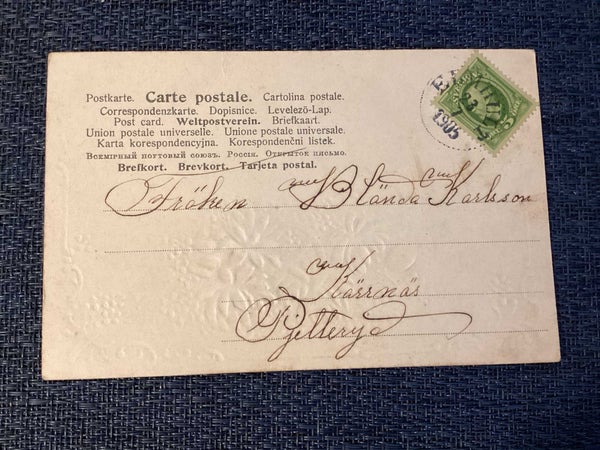 Postkarte. Carte postale. Cartolina postale.
Correspondenzkarte. Dopisnice. Levelező-Lap.
Post card. Weltpostverein. Briefkaart.
Union postale universelle. Unione postale universale.
Karta korespondencyjna. Korespondenční lístek.
Всемірный почтовый союзъ. Россія. Открытое письмо.
Brefkort. Brevkort. Tarjeta postal.
Fröken Blända Karlsson
Kärrnäs
Pjetteryd
1905